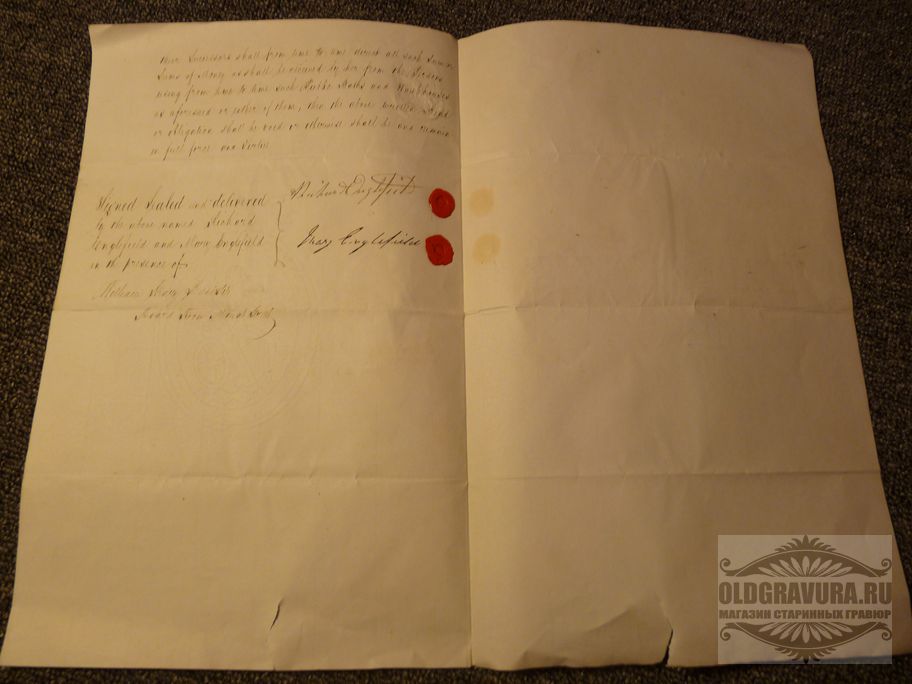 their Successors shall from time to time direct all such Sum or
Sums of Money as shall be received by her from the Persons
using from time to time such Public Baths and Washhouses
as aforesaid or either of them, then the above written Bond
or obligation shall be void or otherwise shall be and remain
in full force and Virtue
Signed Sealed and delivered
by the above named Richard
Englefield and Mary Englefield
in the presence of
Richard Englefield
Mary Englefield
OLDGRAVURA.RU
МАГАЗИН СТАРИННЫХ ГРАВЮР